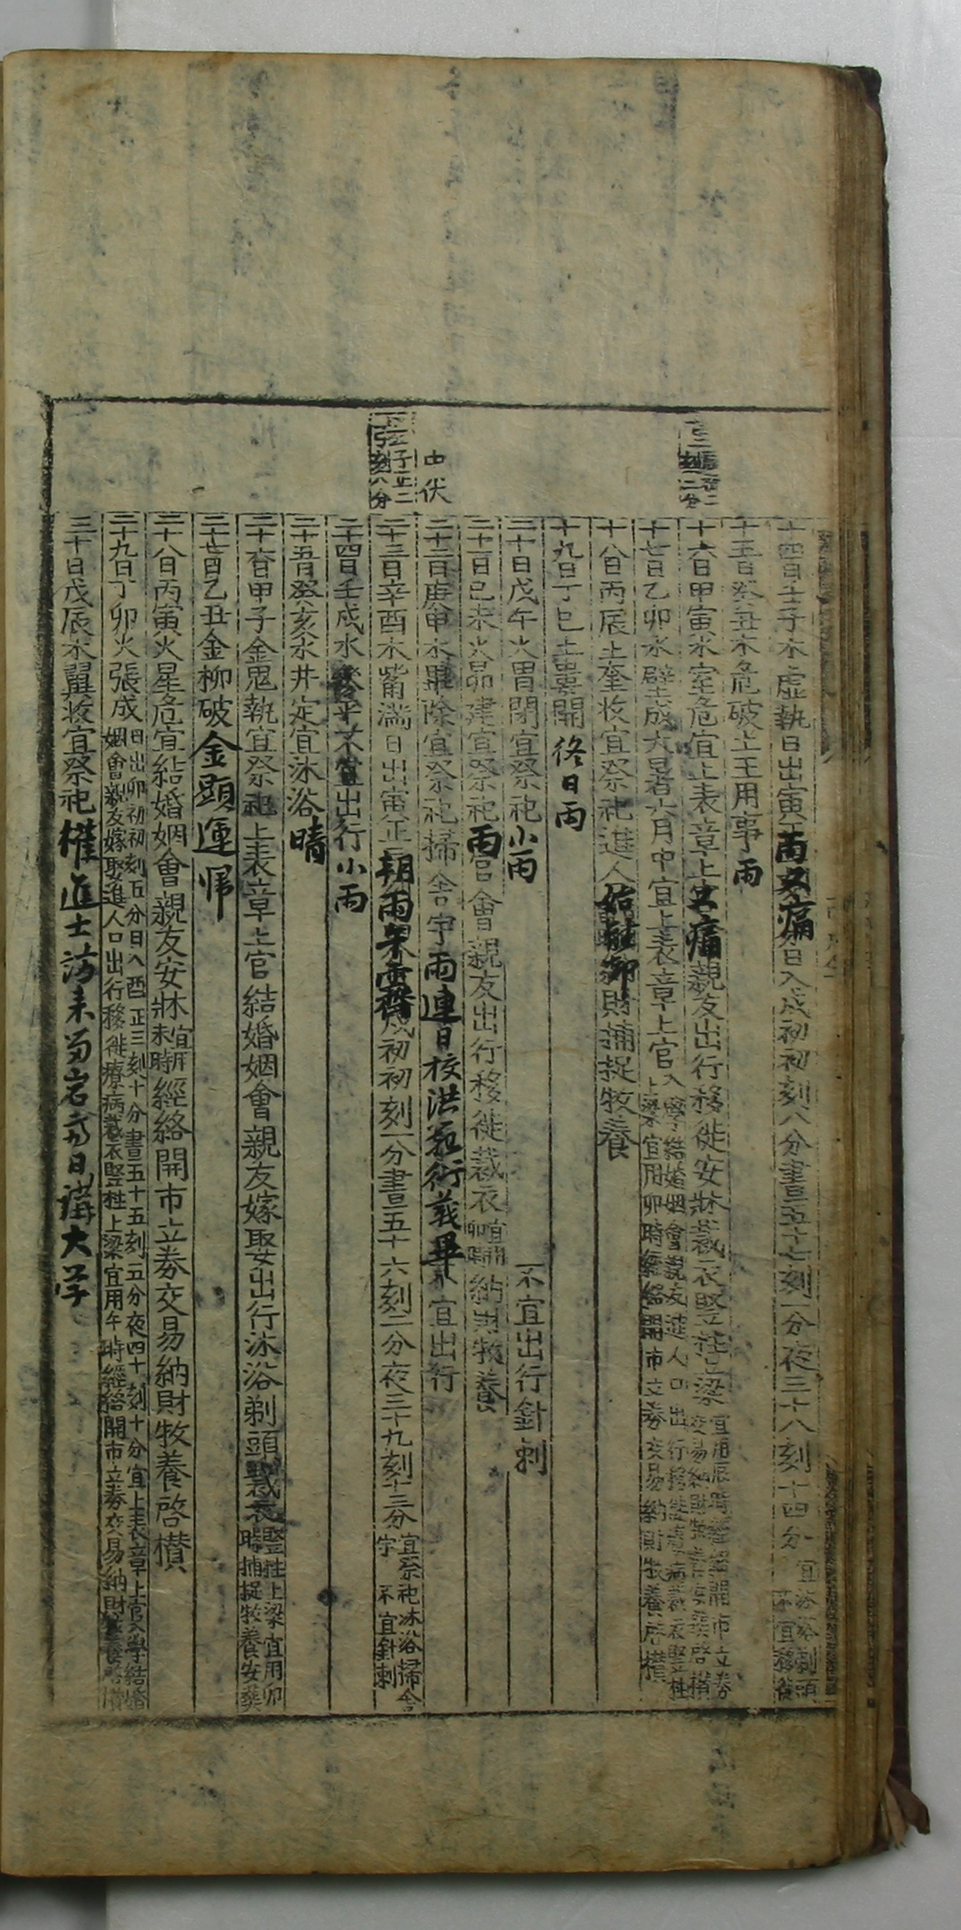 十四日壬子木虛執日出寅雨又痛日入戌初初刻八分晝五十七刻一分夜三十八刻十四分宜沐浴剃頭不宜移徙
十五日癸丑木危破土王用事雨
十六日甲寅水室危宜上表章上又痛親友出行移徙安牀裁衣竪柱上梁宜用辰時經絡開市立券交易納財牧養安葬啓欑
十七日乙卯水壁成大暑六月中宜上表章上官入學結婚姻會親友進人口出行移徙療病裁衣竪柱上梁宜用卯時經絡開市立券交易納財牧養啓欑
十八日丙辰土奎收宜祭祀進人始能御財捕捉牧養
十九日丁巳土婁開終日雨
二十日戊午火胃閉宜祭祀小雨不宜出行針刺
中伏
二十一日己未火昴建宜祭祀雨官會親友出行移徙裁衣宜用卯時納財牧養
二十二日庚申木畢除宜祭祀掃舍宇雨連日校洪範衍義畢不宜出行
下弦子正二刻八分
二十三日辛酉木觜滿日出寅正朝雨朱霽戌初初刻一分晝五十六刻二分夜三十九刻十三分宜祭祀沐浴掃舍宇不宜針刺
二十四日壬戌水參平不宜出行小雨
二十五日癸亥水井定宜沐浴晴
二十六日甲子金鬼執宜祭祀上表章上官結婚姻會親友嫁娶出行沐浴剃頭裁衣竪柱上梁宜用卯時捕捉牧養安葬
二十七日乙丑金柳破金顯運歸
二十八日丙寅火星危宜結婚姻會親友安牀宜用未時經絡開市立券交易納財牧養啓欑
二十九日丁卯火張成日出卯初初刻五分日入酉正三刻十分晝五十五刻五分夜四十刻十分宜上表章上官入學結婚姻會親友嫁娶進人口出行移徙療病裁衣竪柱上梁宜用午時經絡開市立券交易納財牧養啓欑
三十日戊辰木翼收宜祭祀權進士訪來留岩齋日講大学